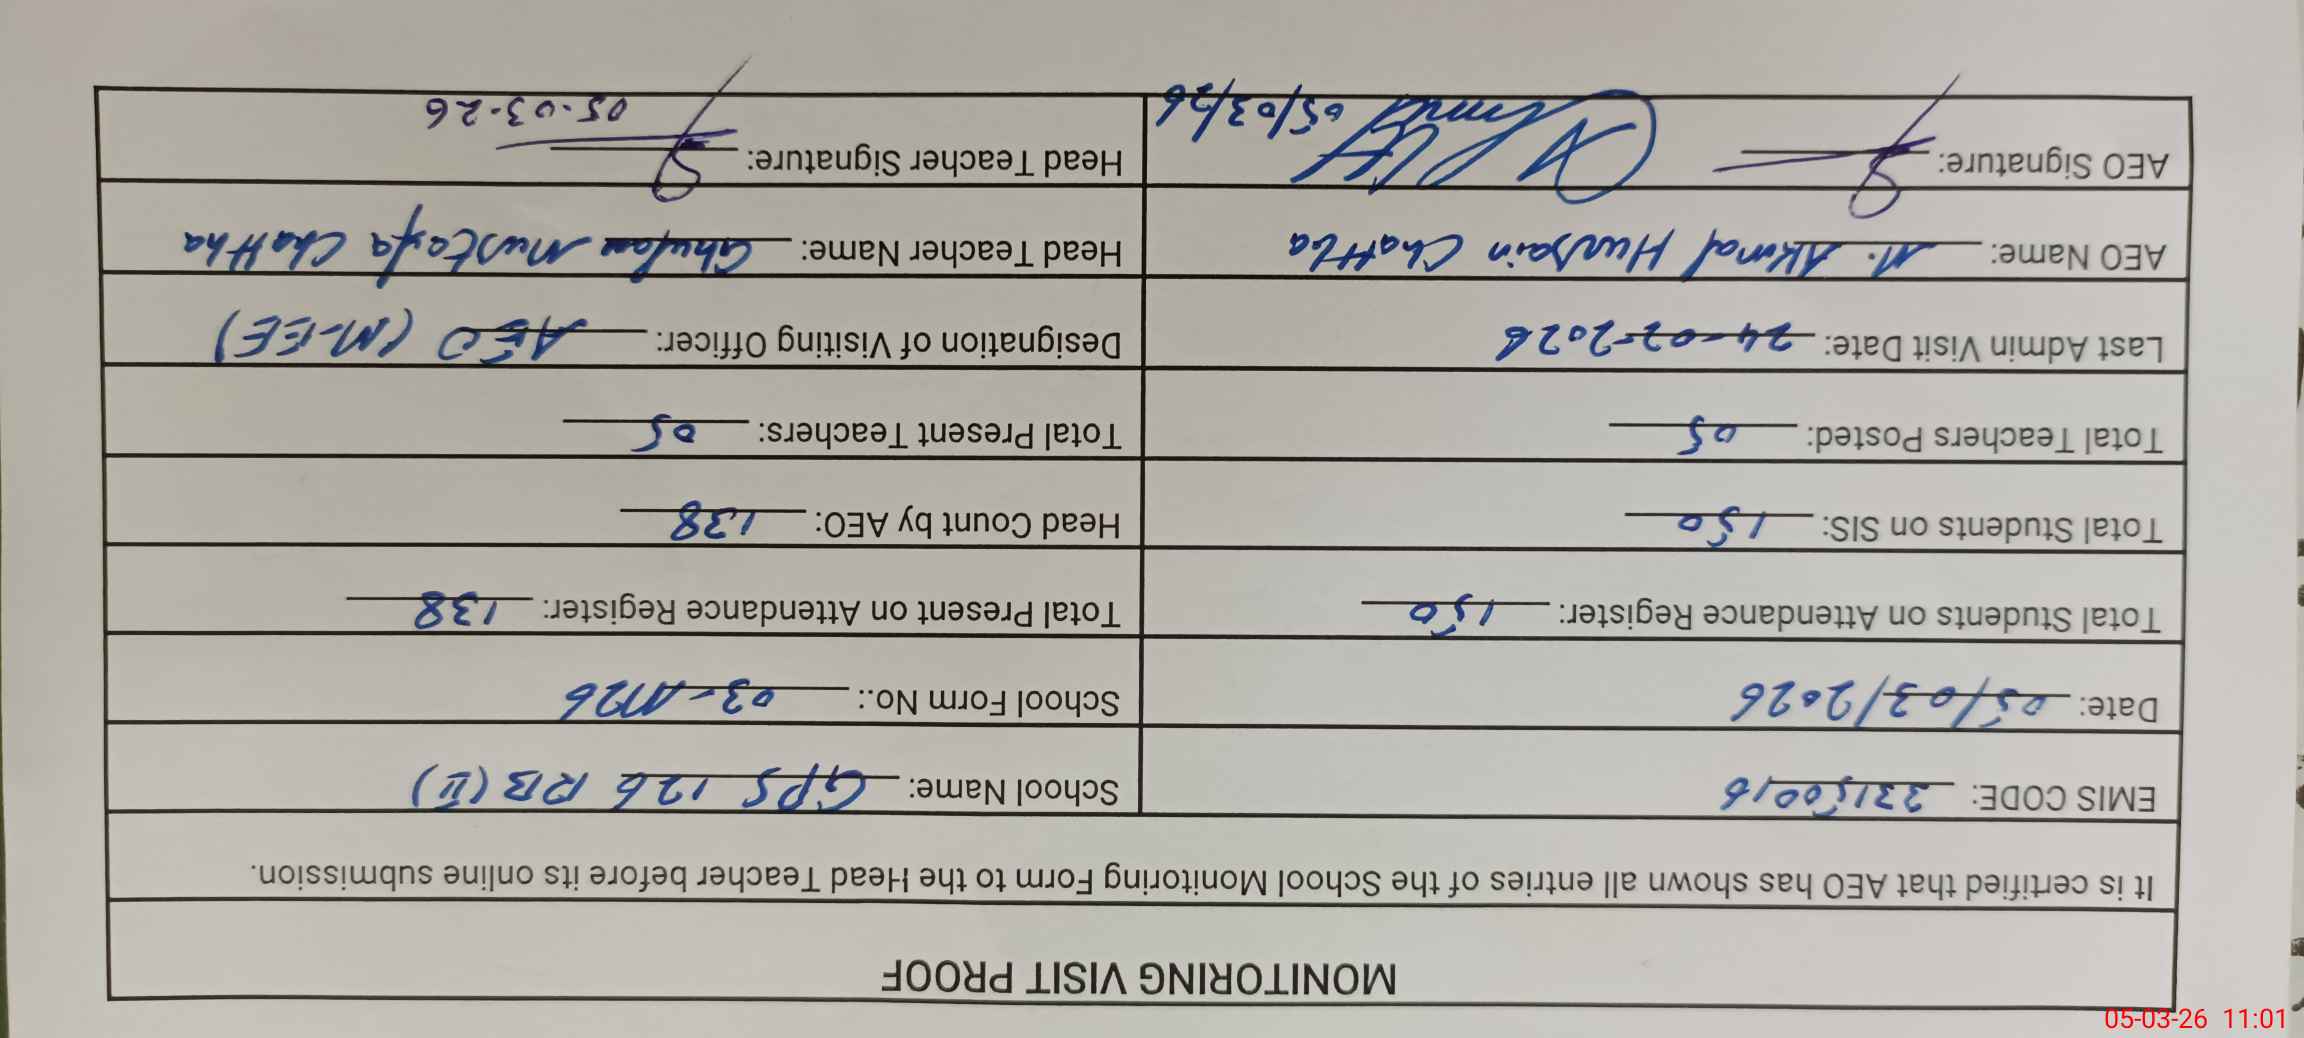 MONITORING VISIT PROOF
It is certified that AEO has shown all entries of the School Monitoring Form to the Head Teacher before its online submission.
EMIS CODE: 33150016 School Name: GPS 126 RB (II)
Date: 05/03/2026 School Form No.: 03-M26
Total Students on Attendance Register: 150 Total Present on Attendance Register: 138
Total Students on SIS: 150 Head Count by AEO: 138
Total Teachers Posted: 05 Total Present Teachers: 05
Last Admin Visit Date: 24-02-2026 Designation of Visiting Officer: AEO (M-EE)
AEO Name: M. Akmal Hussain Chattha Head Teacher Name: Ghulam Mustafa Chattha
AEO Signature: 05/03/26 Head Teacher Signature: 05-03-26
05-03-26 11:01